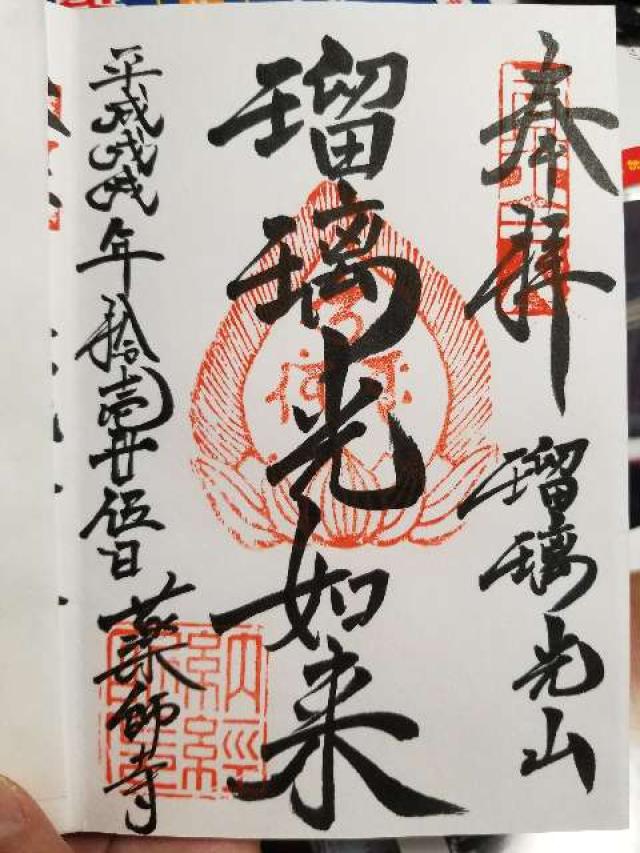 奉拝
瑠璃光山
瑠璃光如来
平成戊戌年拾壱廿伍日
薬師寺